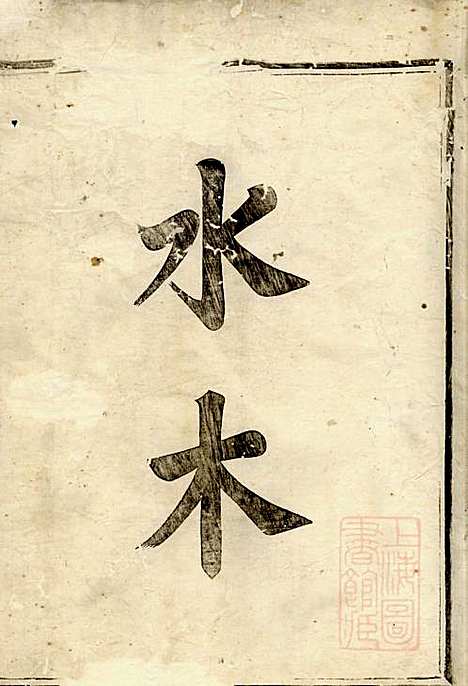 水木
上海圖
書館藏